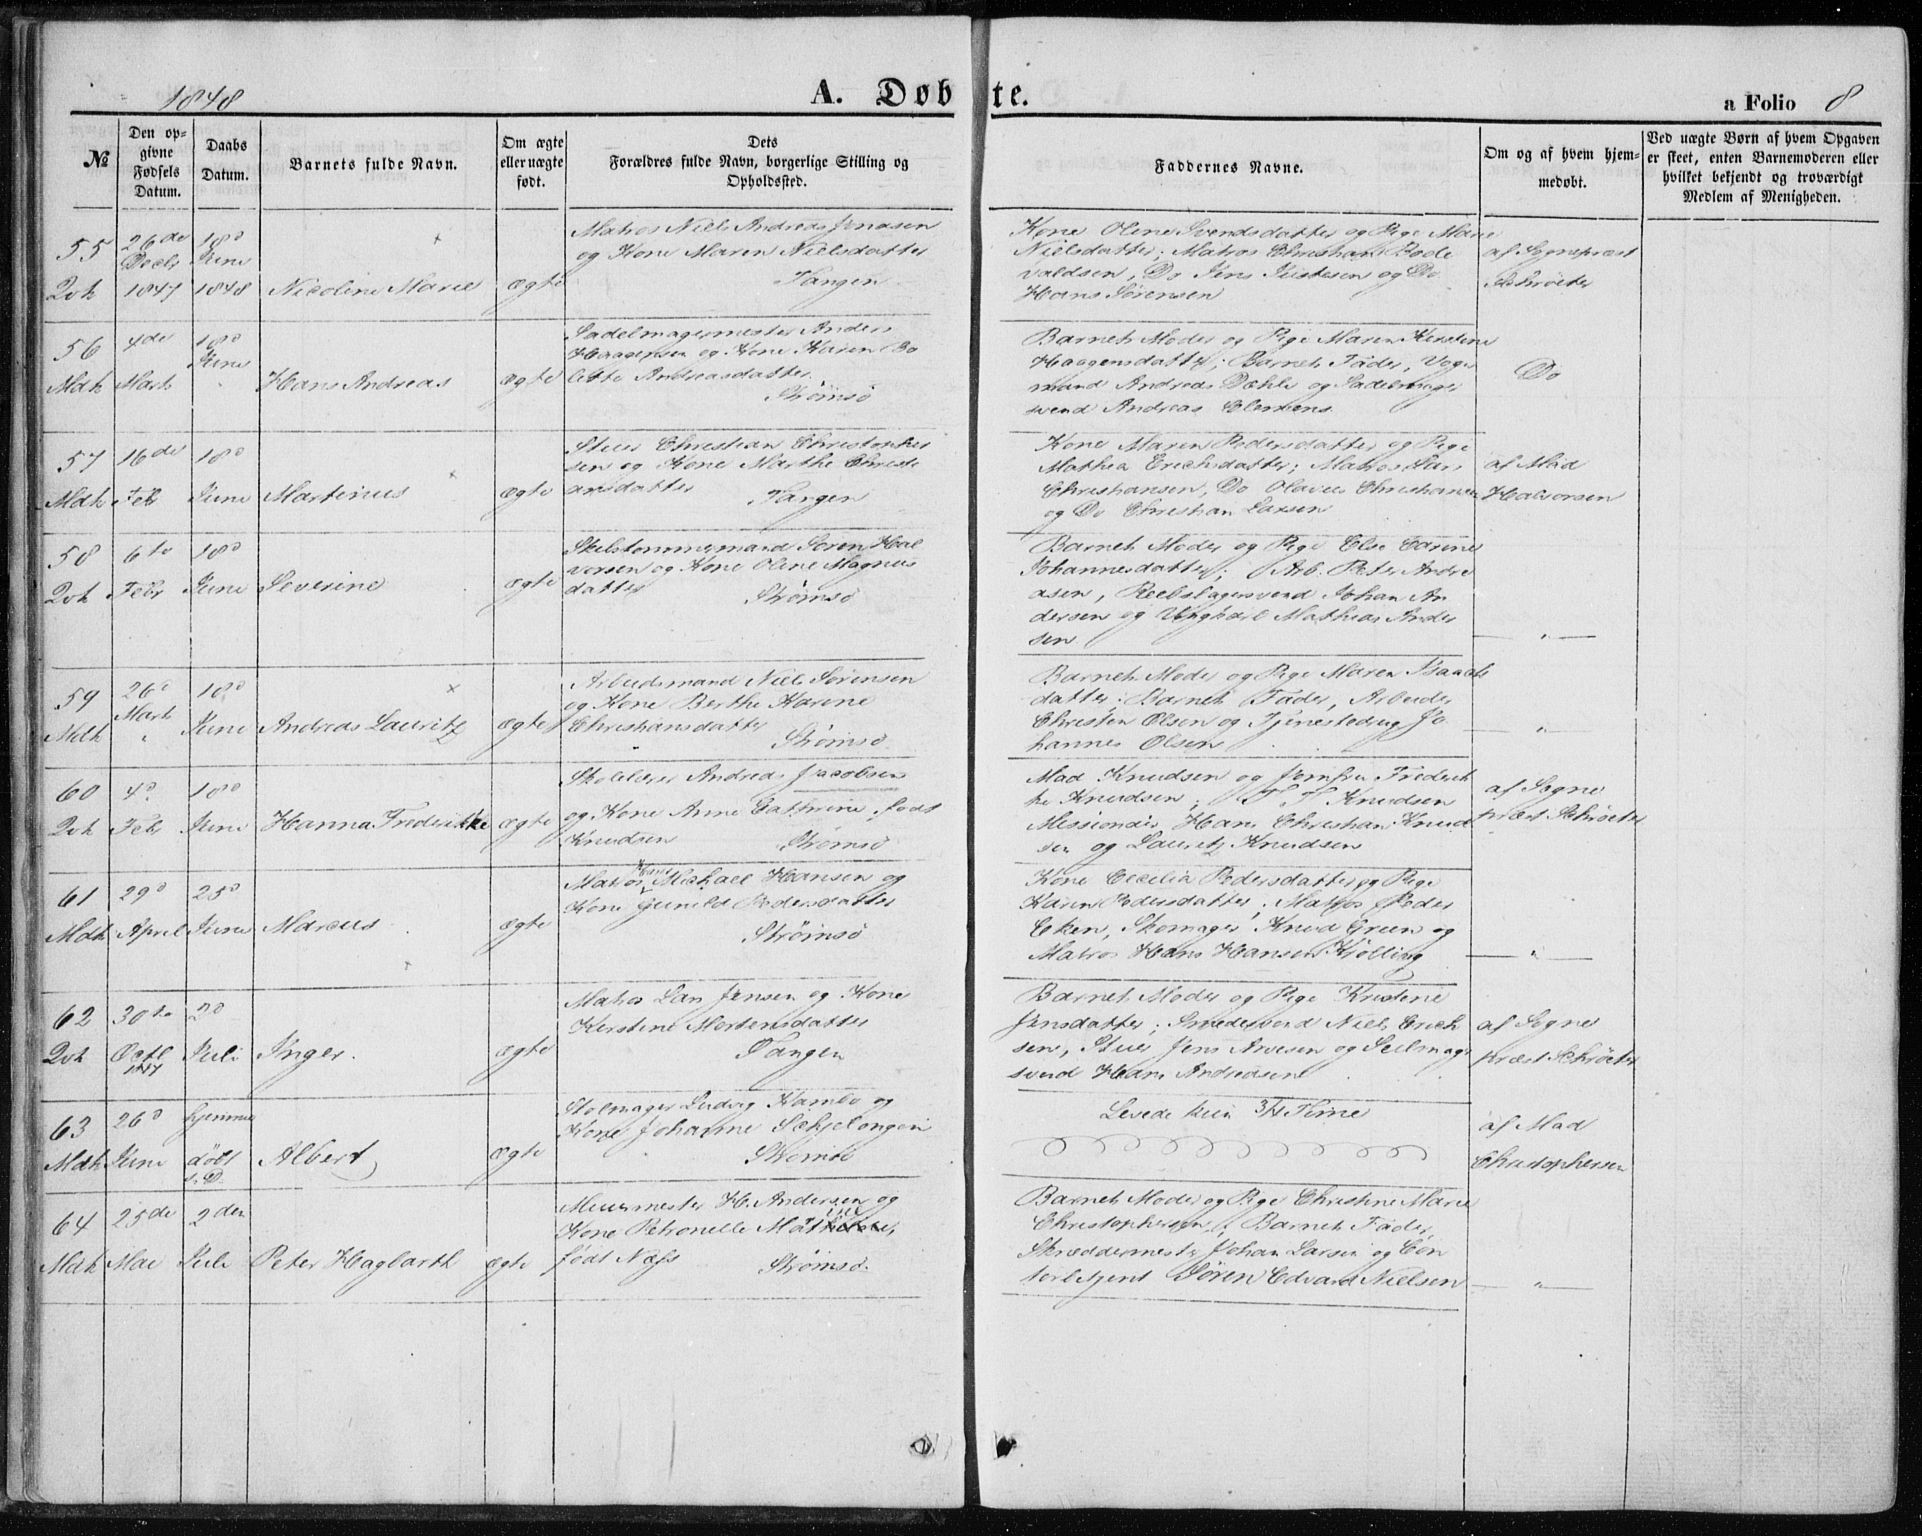 1848
A. Døbte.
a Folio 8
№
Den op-
givne
Fødsels
Datum.
Daabs
Datum.
Barnets fulde Navn.
Om ægte
eller uægte
født.
Dets
Forældres fulde Navn, borgerlige Stilling og
Opholdssted.
Faddernes Navne.
Om og af hvem hjem-
medøbt.
Ved uægte Børn af hvem Opgaven
er skeet, enten Barnemoderen eller
hvilket bekjendt og troværdigt
Medlem af Menigheden.
55
Qvk
26de
Decbr
1847
18d
Juni
1848
Nicoline Marie
ægte
Matros Niels Andreas Jonasen
og Kone Maren Nielsdatter
Tangen
Kone Oline Svendsdatter og Pige Marie
Nielsdatter; Matros Christian Bode
valdsen, Do Jens Justesen og Do
Hans Sørensen
af Sognepræst
Schrøeter
56
Mdk
4de
Marts
18d
Juni
Hans Andreas
ægte
Sadelmagermester Anders
Haagensen og Kone Karen Bo
lette Andreasdatter
Strømsö
Barnets Moder og Pige Maren Kirstine
Haagensdatter; Barnets Fader, Vogn
mand Andreas Dæhli og Sadelmager
svend Andreas Clemens
Do
57
Mdk
16de
Febr
18d
Juni
Martinus
ægte
Stuer Christian Christopher
sen og Kone Marthe Christi
ansdatter
Tangen
Kone Maren Pedersdatter og Pige
Mathea Erichsdatter; Matros Lars
Christiansen, Do Olaves Christiansen
og Do Christian Larsen
af Mad
Halvorsen
58
Qvk
6te
Febr
18d
Juni
Severine
ægte
Skibstømmermand Søren Hal
vorsen og Kone Oline Magnus
datter
Strømsö
Barnets Moder og Pige Else Carine
Johannesdatter; Arb. Peter Andre
asen, Reebslagersvend Johan An
dersen og Ungkarl Mathias Ander
sen
"
59
Mdk
26d
Marts
"
18d
Juni
Andreas Lauritz
ægte
Arbeidsmand Niels Sørensen
og Kone Berthe Karine
Christiansdatter
Strømsö
Barnets Moder og Pige Maren Isaach
datter; Barnets Fader, Arbeider
Christen Olsen og Tjenestedreng Jo
hannes Olsen
"
60
Qvk
4d
Febr
18d
Juni
Hanna Frederikke
ægte
Skolelærer Andreas Jacobsen
og Kone Anne Cathrine, født
Knudsen
Strømsö
Mad Knudsen og Jomfru Frederik
ke Knudsen; Knudsen
Missionair Hans Christian Knud
sen og Lauritz Knudsen
af Sogne
præst Schrøeter
61
Mdk
29d
April
25d
Juni
Marcus
ægte
Matros Hans Michael Hansen og
Kone Gunild Pedersdatter
Strømsö
Kone Cecilia Pedersdatter og Pige
Karen Pedersdatter; Matros Peder
Eken, Skomager Knud Green og
Matros Hans Hansen Kjølling
"
62
Qvk
30te
Octb
1847
2d
Juli
Inger.
ægte
Matros Lars Jensen og Kone
Kirstine Mortensdatter
Tangen
Barnets Moder og Pige Kristine
Jensdatter; Smedesvend Niels Erich
sen, Stuer Jens Arvesen og Seilmager
svend Hans Andreasen
af Sogne
præst Schrøeter
63
Mdk
26d
Juni
hjemme
døbt
s. D.
Albert
ægte
Stolmager Ludvig Kambo og
Kone Johanne
Strømsö
Levede kun 3/4 Time
af Mad
Christophersen
64
Mdk
25de
Mai
2den
Juli
Peter Hagbarth
ægte
Muurmester H. Andersen og
Kone Petronelle
født Næss
Strømsö
Barnets Moder og Pige Christine Marie
Christophersen; Barnets Fader,
Skræddermester Johan Larsen og Con
torbetjent Søren Edvard Nielsen
"